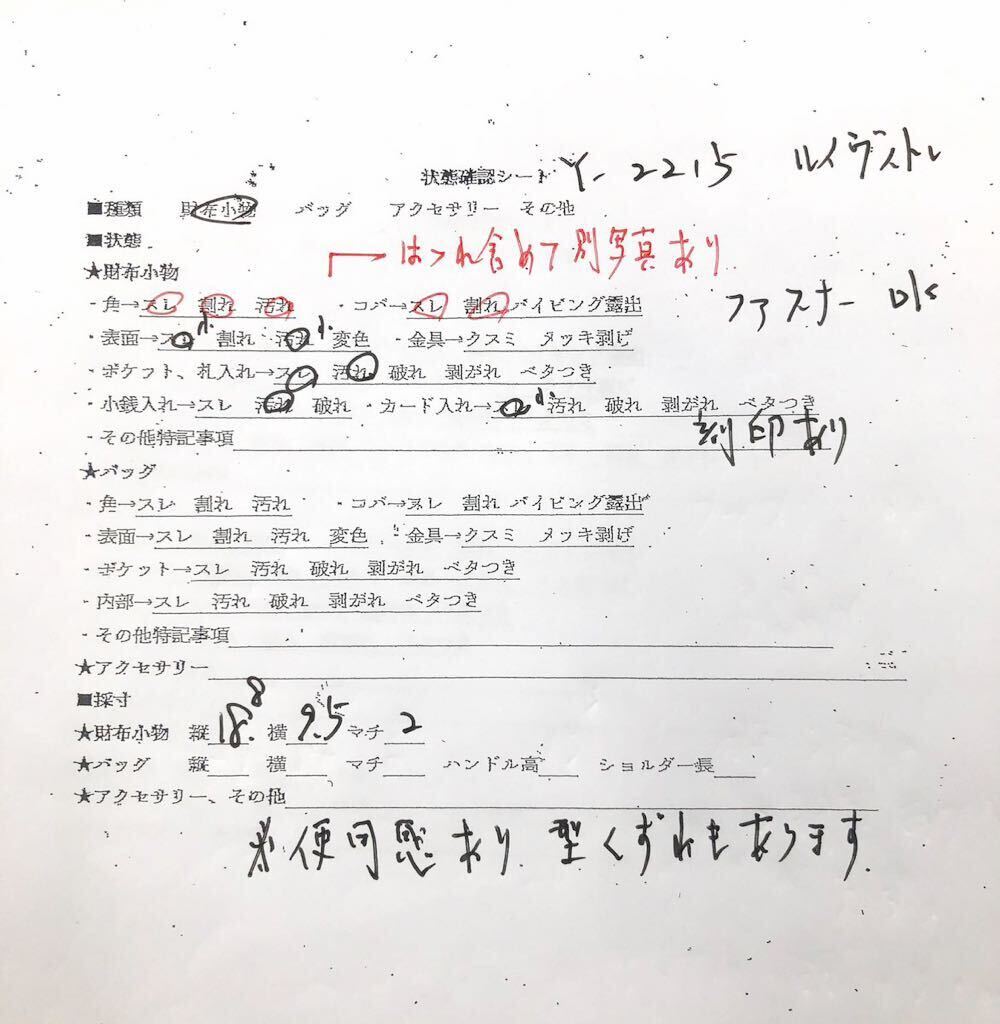 状態確認シート Y-2215 ルイヴィトン
■種類 財布小物 バッグ アクセサリー その他
■状態 はつれ含めて別写真あり
★財布小物
・角→スレ 割れ 汚れ ・コバ→スレ 割れ パイピング露出 ファスナー OK
・表面→スレ小 割れ 汚れ小 変色 ・金具→クスミ メッキ剥げ
・ポケット、札入れ→スレ 汚れ 破れ 剥がれ ベタつき
・小銭入れ→スレ 汚れ 破れ ・カード入れ→スレ小 汚れ 破れ 剥がれ ベタつき
・その他特記事項 刻印あり
★バッグ
・角→スレ 割れ 汚れ ・コバ→スレ 割れ パイピング露出
・表面→スレ 割れ 汚れ 変色 ・金具→クスミ メッキ剥げ
・ポケット→スレ 汚れ 破れ 剥がれ ベタつき
・内部→スレ 汚れ 破れ 剥がれ ベタつき
・その他特記事項
★アクセサリー
■採寸
★財布小物 縦 18.8 横 9.5 マチ 2
★バッグ 縦 横 マチ ハンドル高 ショルダー長
★アクセサリー、その他
※使用感あり 型くずれもあります。